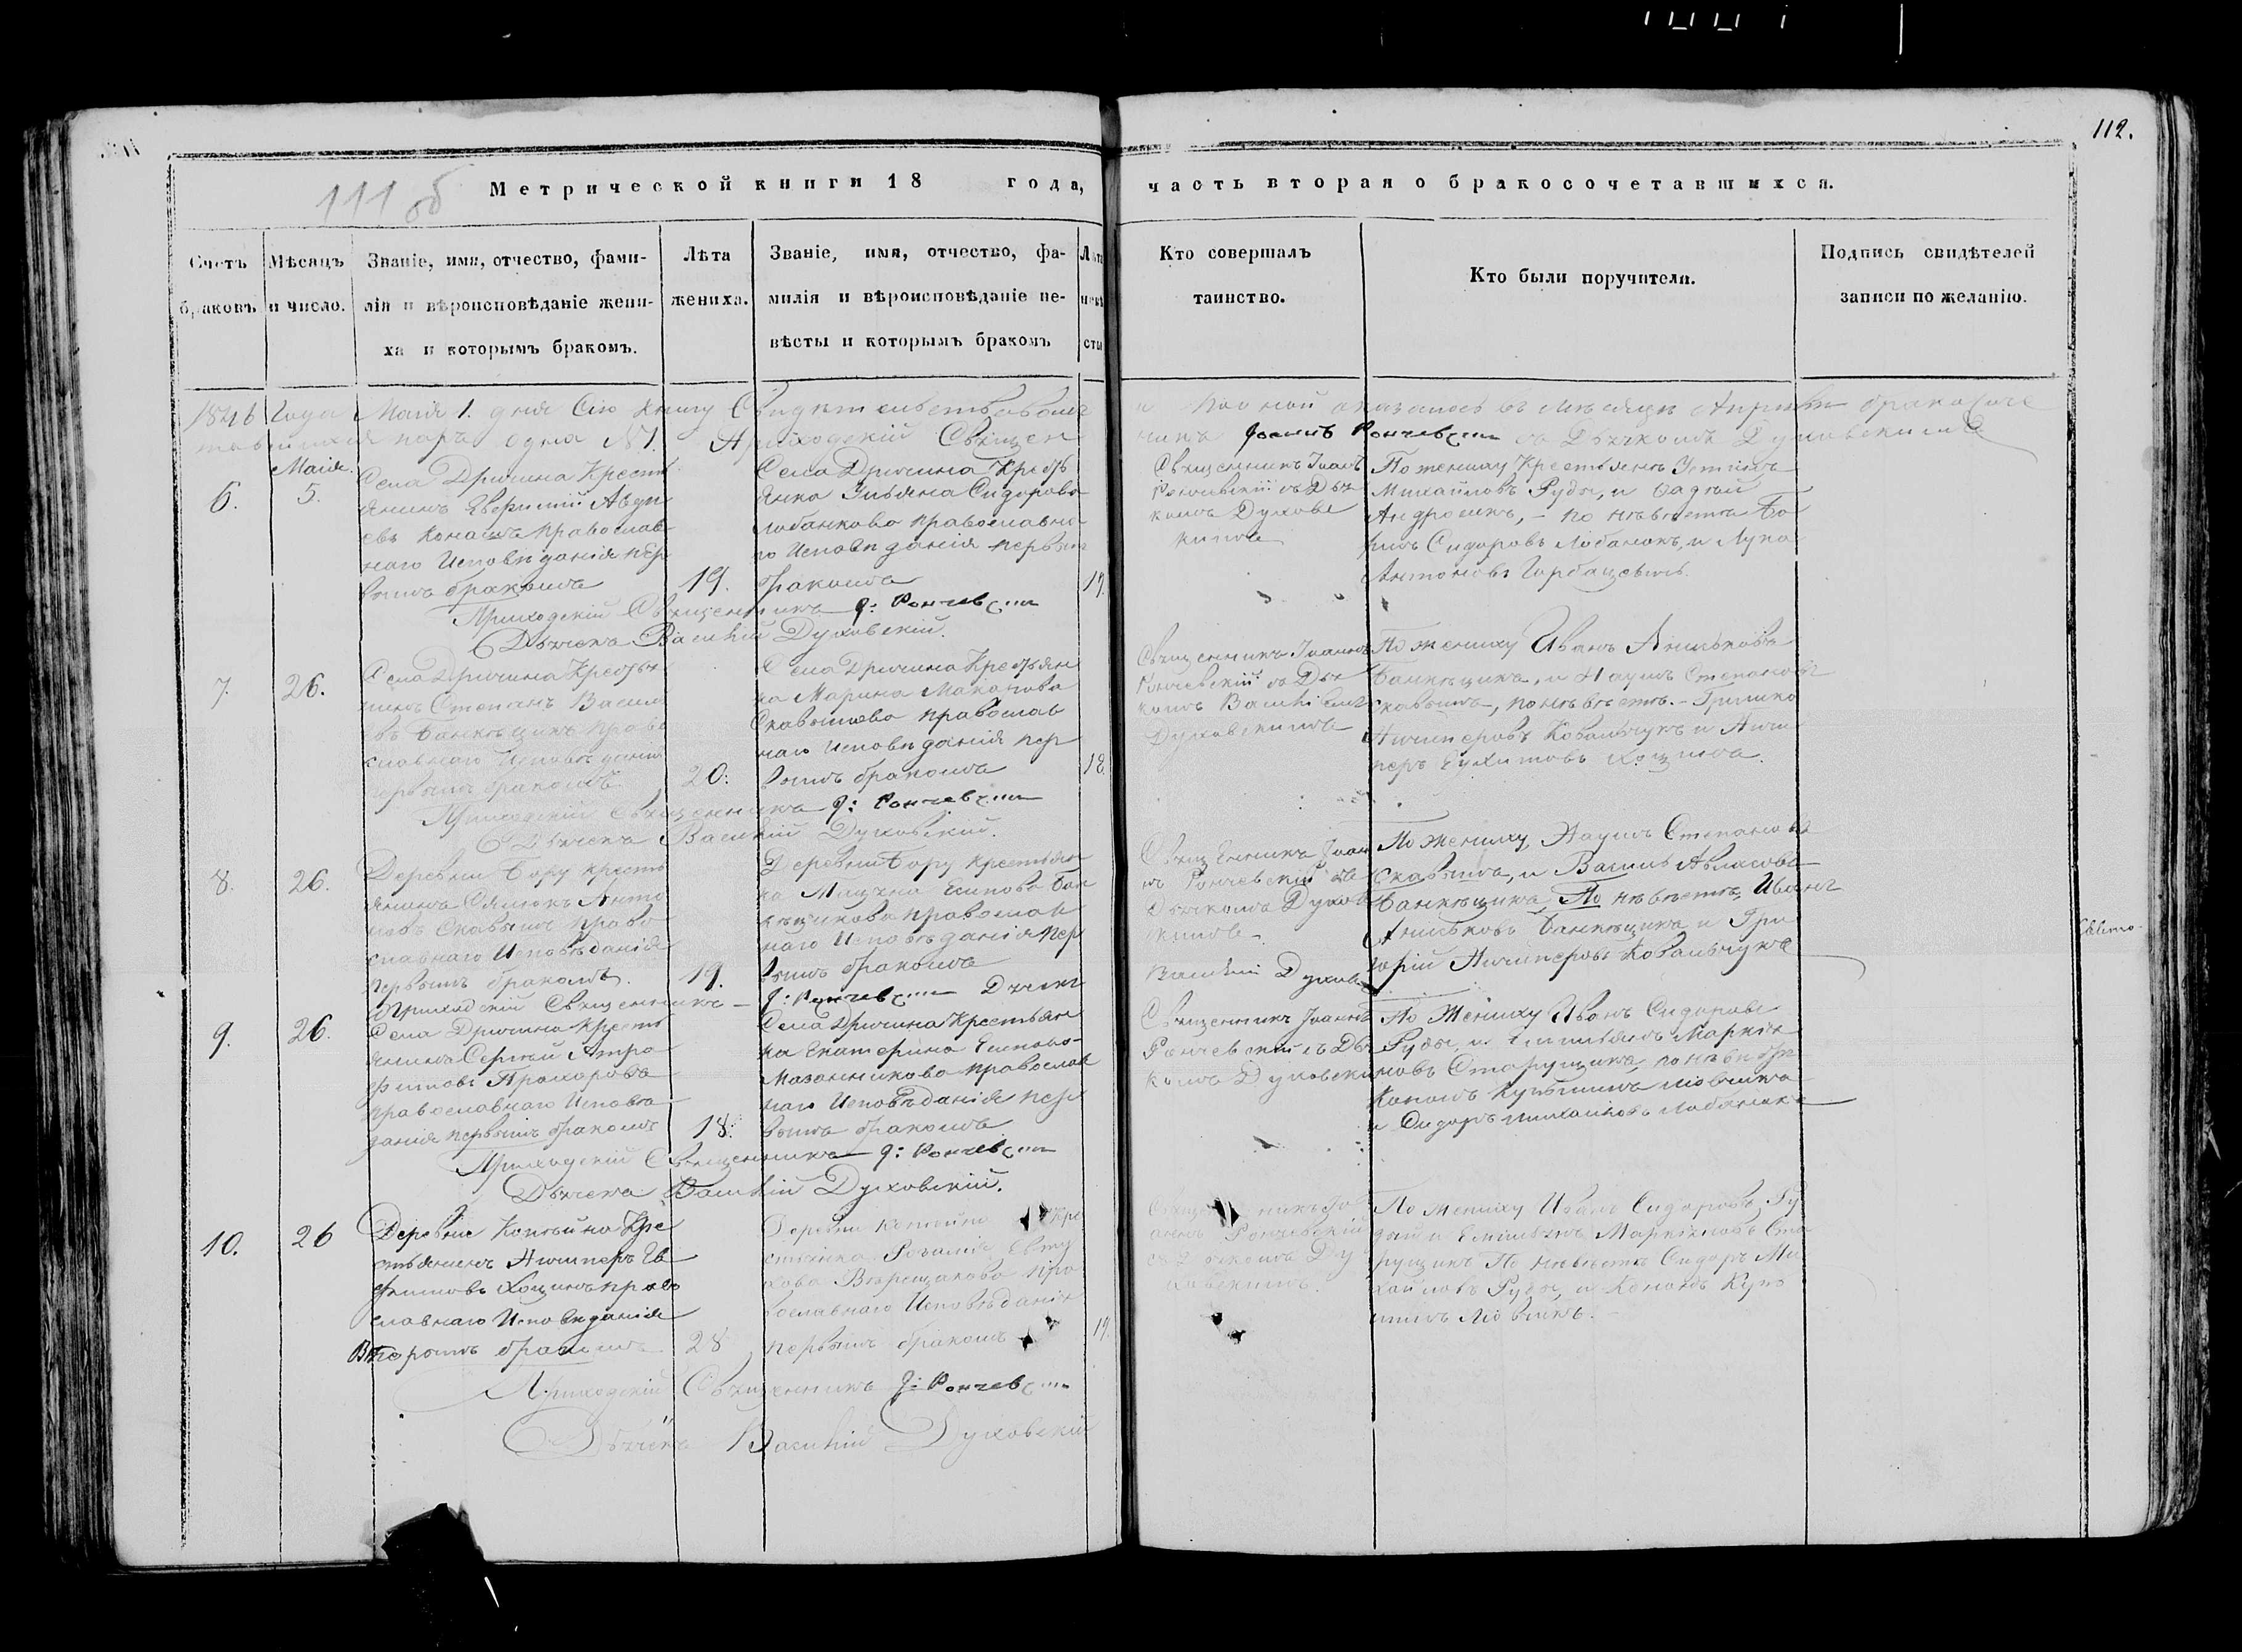 112.
111 об
Метрической книги 18 года, часть вторая о бракосочетавшихся.
Счетъ браковъ
Мѣсяцъ и число.
Званіе, имя, отчество, фами-
лія и вѣроисповѣданіе жени-
ха и которымъ бракомъ.
Лѣта
жениха.
Званіе, имя, отчество, фа-
милія и вѣроисповѣданіе не-
вѣсты и которымъ бракомъ
Лѣта
невѣ
сты
Кто совершалъ
таинство.
Кто были поручители.
Подпись свидѣтелей
записи по желанію.
1846 Года Маія 1. дня Сію книгу Свидѣтельствовали
и по ней оказалось въ мѣсяцѣ Апрѣлѣ бракосоче
тавшихся паръ одна №1. Приходскій Священ
никъ Іоаннъ Рончевскій съ Дьячкомъ Духовскимъ
6.
Маія
5.
Села Дричина Кресть
янинъ
Конашъ православ
наго Исповѣданія пер
вымъ бракомъ
19.
Села Дричина Кресть
янка Ульяна Сидорова
Лобанкова православна
го Исповѣданія первым
бракомъ
19.
Священникъ Іоаннъ
Рончевскій съ Дья
комъ Духовс
кимъ
По жениху Крестьянинъ Устинъ
Михайловъ Руды, и Фадѣй
по невѣстѣ Бо
Сидоровъ Лобанокъ, и Лука
Антоновъ Горбацевичъ.
Приходскій Священникъ І: Рончевскій
Дьячекъ Василій Духовскій.
7.
26.
Села Дричина Крестья
нинъ Степанъ Васил
евъ Банкѣщикъ право
славнаго Исповѣданія
первымъ бракомъ
20.
Села Дричина Крестьян
ка Марина Макарова
православ
наго Исповѣданія пер
вымъ бракомъ
18.
Священникъ Іоаннъ
Рончевскій съ Дья
комъ Василіемъ
Духовскимъ
По жениху Иванъ
Банкѣщикъ, и Наумъ Степановъ
Скавышъ, по невѣстѣ. Гришко
Анципоровъ Ковальчукъ и Анци
перъ Евхимовъ Хоцимъ.
Приходскій Священникъ І: Рончевскій
Дьячекъ Василій Духовскій.
8.
26.
Деревни Бору кресть
янинъ Сямонъ Анто
новъ Скавышъ право
славнаго Исповѣданія
первымъ бракомъ.
19.
Деревни Бору крестьян
ка Есипова Бан
кѣщикова православ
наго Исповѣданія пер
вымъ бракомъ
Священникъ Іоан
нъ Рончевскій съ
Дьячкомъ Духов
скимъ
По жениху, Наумъ Степановъ
Скавышъ, и Василь Авласовъ
Банкѣщикъ, По невѣстѣ, Иванъ
Банкѣщикъ и Гри
горій Анципоровъ Ковальчукъ
Приходскій Священникъ І: Рончевскій Дьячекъ
Василій Духовс
9.
26.
Села Дричина Кресть
янинъ Сергѣй
Прохоровъ
православнаго Исповѣ
данія первымъ бракомъ
18.
Села Дричина Крестьян
ка Екатерина Есипова
Мазанникова православ
наго Исповѣданія пер
вымъ бракомъ
Священникъ Іоаннъ
Рончевскій съ Дья
комъ Духовским
По Жениху Иванъ Сидоровъ
Рудый, и Емильянъ Маркія
новъ Старущикъ, по невѣстѣ
Кононъ Кузьминъ Ліовчикъ
и Сидоръ Михайловъ Лобанокъ
Приходскій Священникъ І: Рончевскій
Дьячекъ Василій Духовскій.
10.
26
Деревни Копѣйна Кре
стьянинъ Анциперъ Ев
фимовъ Хоцимъ право
славнаго Исповѣданія
Вторымъ бракомъ
28
Деревни Копѣйна Кре
стьянка Розалія Евту
хова Верещакова пра
вославнаго Исповѣданія
первымъ бракомъ
19.
Священникъ Іо
аннъ Рончевскій
съ Дьячкомъ Ду
ховскимъ.
По жениху Иванъ Сидоровъ Ру
дый и Емильянъ Маркіяновъ Ста
рущикъ По невѣстѣ Сидоръ Ми
хайловъ Рудый, и Кононъ Кузь
минъ Ліовчикъ.
Приходскій Священникъ І: Рончевскій
Дьячекъ Василій Духовскій